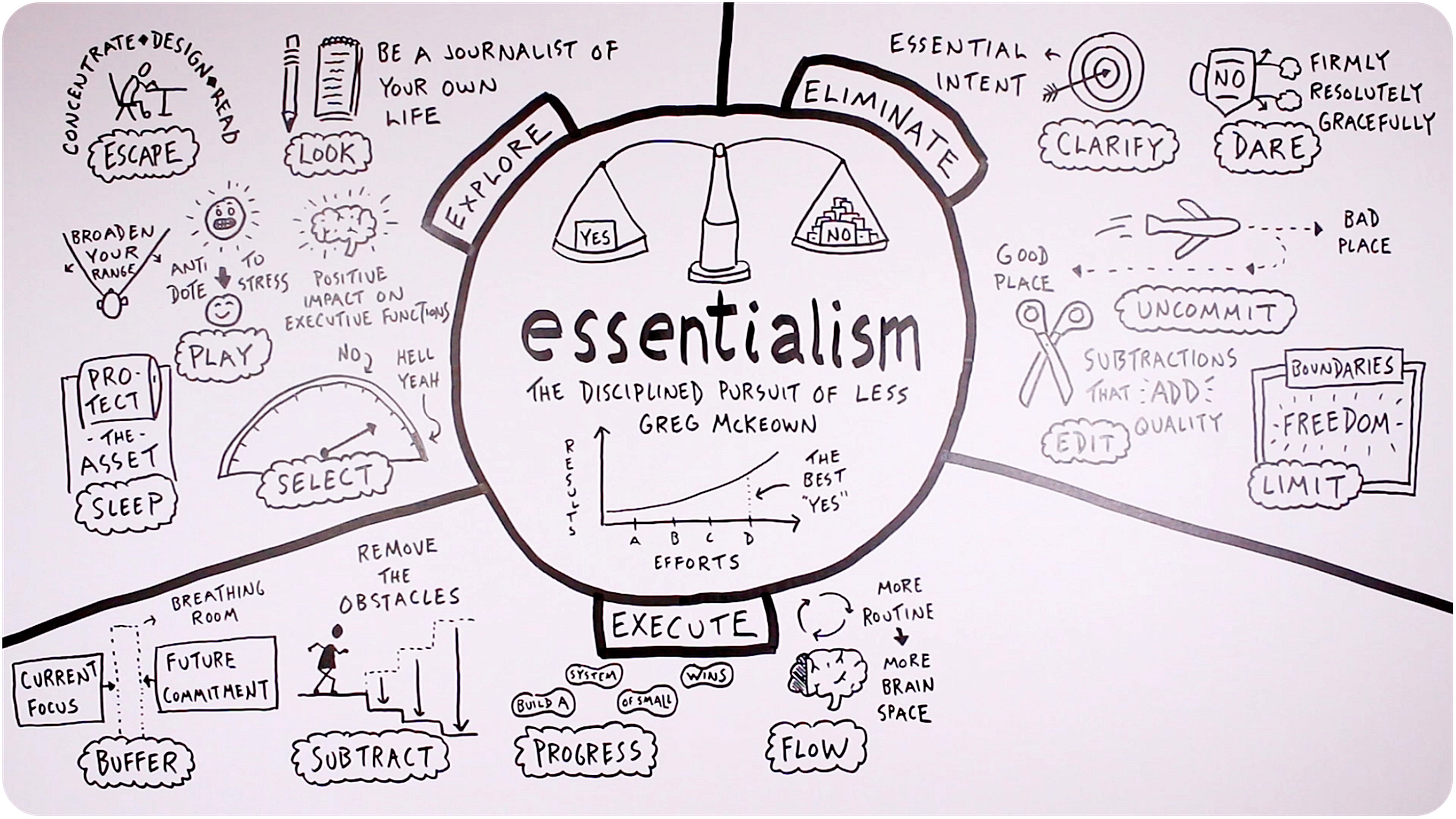 essentialism
THE DISCIPLINED PURSUIT OF LESS
GREG MCKEOWN
YES
NO
RESULTS
A B C D
EFFORTS
THE
BEST
"YES"
EXPLORE
CONCENTRATE • DESIGN • READ
ESCAPE
BE A JOURNALIST OF
YOUR OWN
LIFE
LOOK
BROADEN
YOUR
RANGE
ANTI
DOTE
TO
STRESS
PLAY
POSITIVE
IMPACT ON
EXECUTIVE FUNCTIONS
PRO-
TECT
-THE-
ASSET
SLEEP
NO
HELL
YEAH
SELECT
ELIMINATE
ESSENTIAL
INTENT
CLARIFY
NO
FIRMLY
RESOLUTELY
GRACEFULLY
DARE
BAD
PLACE
GOOD
PLACE
UNCOMMIT
SUBTRACTIONS
THAT ADD
QUALITY
EDIT
BOUNDARIES
FREEDOM
LIMIT
EXECUTE
BREATHING
ROOM
CURRENT
FOCUS
FUTURE
COMMITMENT
BUFFER
REMOVE
THE
OBSTACLES
SUBTRACT
BUILD A
SYSTEM
OF SMALL
WINS
PROGRESS
MORE
ROUTINE
MORE
BRAIN
SPACE
FLOW